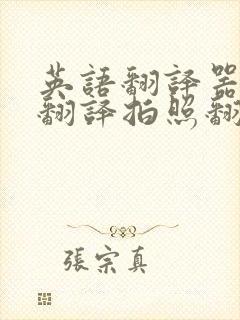 英語翻譯器
翻譯拍照翻
張宗真